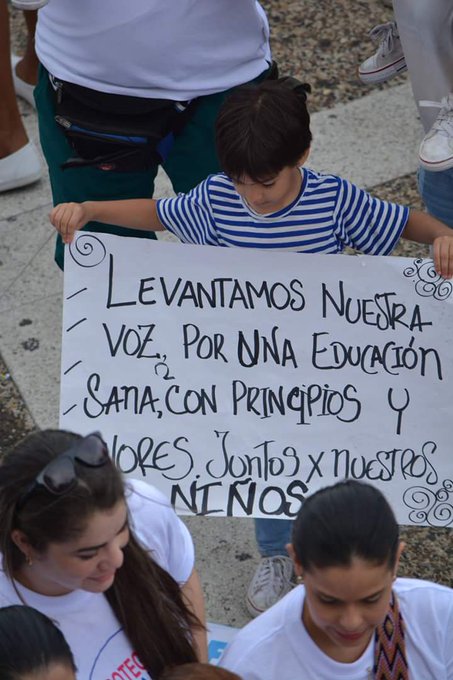 Levantamos Nuestra
voz, por una Educación
Sana, con principios y
Juntos x nuestros
Niños